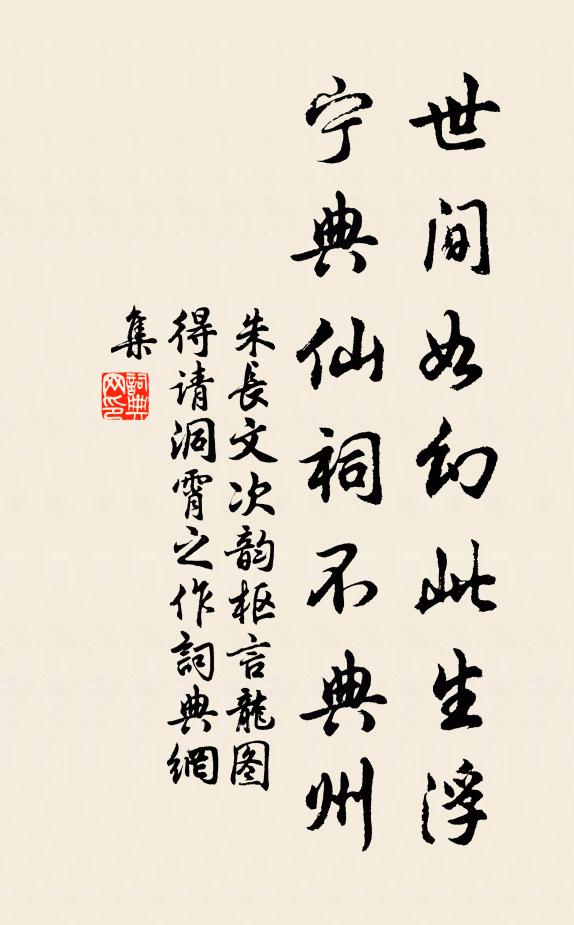 世间如幻此生浮
宁典仙祠不典州
朱長文次韵枢言龍图
得请洞霄之作詞典網
集
詞典網印